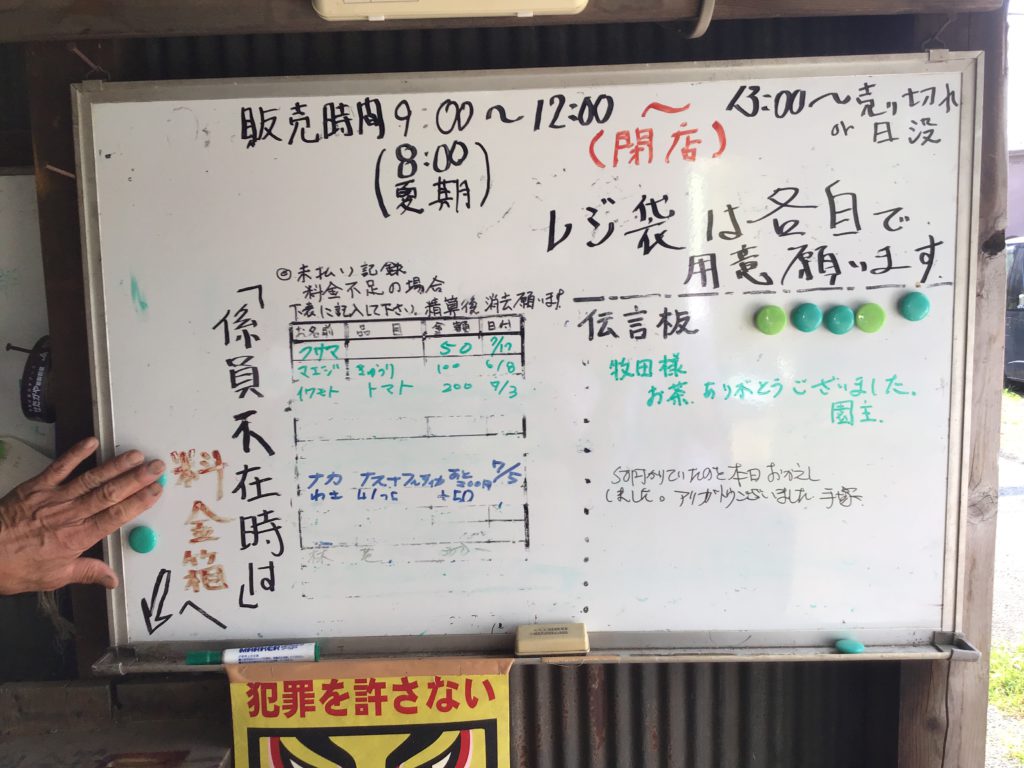 販売時間 9:00～12:00 ～ 13:00～売り切れ
or 日没
(8:00
夏期)
(閉店)
レジ袋は各自で
用意願います
◎未払い記録
料金不足の場合
下表に記入して下さい。精算後消去願います
お名前 品目 金額 日付
フサマ 50 7/17
マエジ きゅうり 100 6/8
イワモト トマト 200 9/3
ナカ あと200円 7/5
+50
「係員不在時は」
料金箱へ
伝言板
牧田様
お茶ありがとうございました。
園主
50円かりていたのを本日おかえし
しました。アリガトウございました 手塚
MARKER
犯罪を許さない